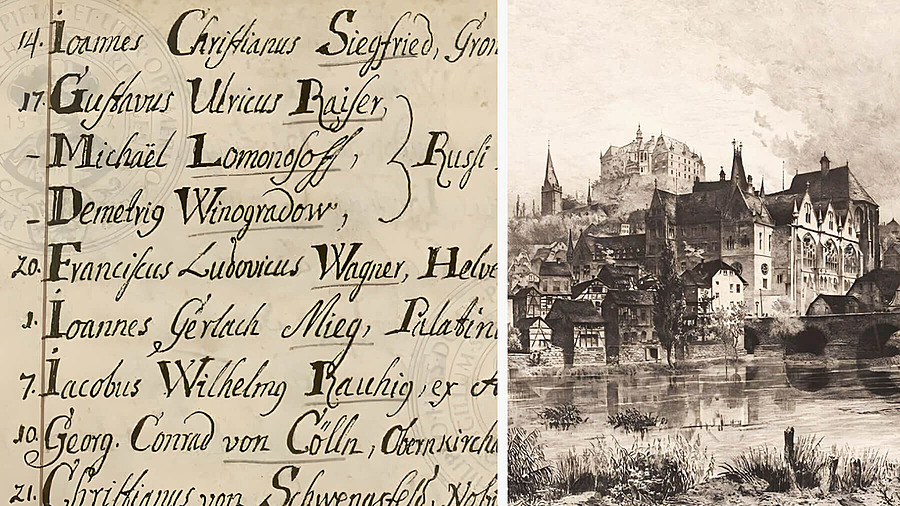 14. Ioannes Chriſtianus Siegfried, Gron
17. Guſtavus Ulricus Raiſer,
– Michaël Lomonoſoff, Ruſſi
– Demetrig Winogradow,
20. Franciſcus Ludovicus Wagner, Helve
1. Ioannes Gerlach Mieg, Palatin
7. Iacobus Wilhelmg Rauhig, ex A
10. Georg. Conrad von Cölln, Obernkircha
21. Chriſtianus von Schwengsfeld, Nobi